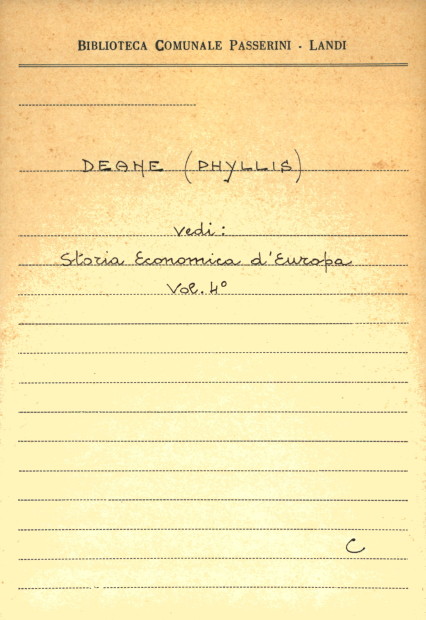 BIBLIOTECA COMUNALE PASSERINI - LANDI
DEANE (PHYLLIS)
Vedi:
Storia Economica d'Europa
Vol. 4°
C